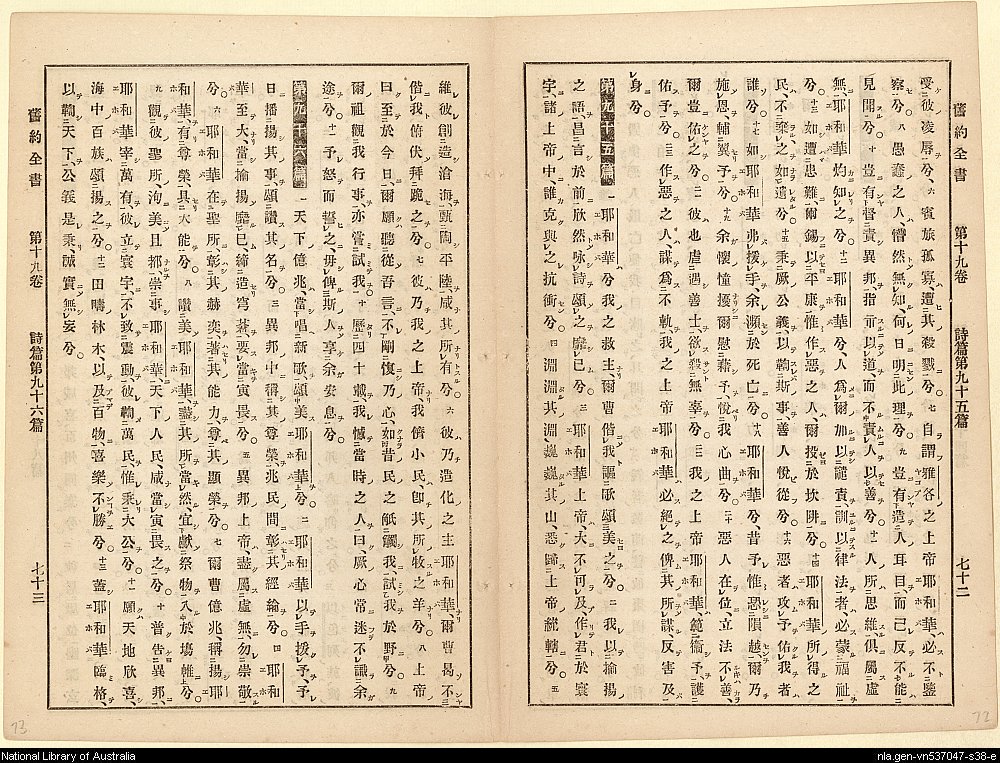 舊約全書　第十九卷　詩篇第九十五篇　七十二
受彼凌辱兮、六賓旅孤寡遭其殺戮兮。七自謂雅各之上帝耶和華、必不鑒
察兮。八愚蠢之人、懵然無知、何日明此理兮。九豈有造人耳目、而己反不能
見聞兮。十豈有督責異邦、指示以道、而不責人以善兮。十一人所思維、俱屬虛
無、耶和華灼知之兮。十二耶和華兮、人爲爾加以譴責、訓以律法者、必蒙福祉
兮。十三如遭患難、爾錫以平康、惟作惡之人、爾投於坎阱兮。十四耶和華所得之
民、不棄之如遺兮。十五秉厥公義、以鞫斯事、善人悅從兮。十六惡者攻予、佑我者
誰兮。十七如耶和華弗援手、余瀕於死亡兮。十八耶和華兮、昔予惟恐隕越、爾乃
施恩、輔翼予兮。十九余懷憧擾、爾慰藉予、悅我心曲兮。二十惡人在位、立法不善、
爾豈佑之兮。二一彼也虐遇善士、欲殺無辜兮。二二我之上帝耶和華、範衞予、護
佑予兮。二三作惡之人、謀爲不軌、我之上帝耶和華必絕之、俾其所謀、反害及
身兮。
第九十五篇　一耶和華兮、我之救主、爾曹偕我謳歌頌美之兮。二我以揄揚
之語、昌言於前、欣然咏詩、頌之靡已兮。三耶和華上帝、大不可及、作君於寰
宇、諸上帝中、誰克與之抗衡兮。四淵淵其淵、巍巍其山、悉歸上帝統轄兮。五
維彼創造滄海、甄陶平陸、咸其所有兮。六彼乃造化之主耶和華、爾曹曷不
偕我俯伏、拜跪之兮。七彼乃我之上帝、我儕小民、卽其所牧之羊兮。八上帝
曰、至於今日、爾願聽吾言、不剛愎乃心、如昔民之觝觸我、試我於野兮。九
爾祖觀我行事、亦嘗試我。十歷四十載、我憾當時之人曰、厥心常迷、不識余
途兮。十一予怒而誓之、毋俾斯人、享余安息兮。
第九十六篇　一天下億兆、當唱新歌、頌美耶和華兮。二耶和華以手援予、予
日播揚其事、頌讚其名兮。三異邦中稱其尊榮、兆民間彰其經綸兮。四耶和
華至大、當揄揚靡已、締造穹蒼、要當寅畏兮。五異邦上帝、盡屬虛無、勿崇敬
兮。六耶和華在聖所、彰其赫奕、著其能力、尊其顯榮兮。七爾曹億兆、稱揚耶
和華、有尊榮、具大能兮。八讚美耶和華、盡其所當然、宜獻祭物、入於塲帷兮。
九觀彼聖所、洵美且都、崇事耶和華、天下人民、咸當寅畏之兮。十普告異邦、
耶和華宰萬有、彼立寰宇、不致震動、彼鞫萬民、惟秉大公兮。十一願天地欣喜、
海中百族、頌揚之兮。十二田疇林木、以及百物、喜樂不勝兮。十三蓋耶和華臨格、
以鞫天下、公義是秉、誠實無妄兮。
舊約全書　第十九卷　詩篇第九十六篇　七十三
73
72
National Library of Australia
nla.gen-vn537047-s38-e